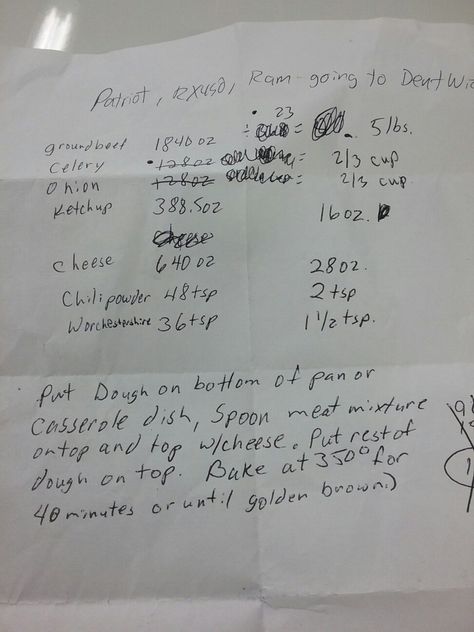 Patriot, RX450, Ram going to Dent Wi
• 23
groundbeef 1840 oz ÷ = . 5 lbs.
Celery • 1280z = 2/3 cup
Onion 1280z = 2/3 cup
Ketchup 388.5oz 16 oz.
cheese
cheese 640 oz 28 oz.
Chili powder 48 tsp 2 tsp
Worchestershire 36 tsp 1 1/2 tsp.
Put Dough on bottom of pan or
casserole dish, Spoon meat mixture
on top and top w/cheese. Put rest of
dough on top. Bake at 350° for
40 minutes or until golden brown:)